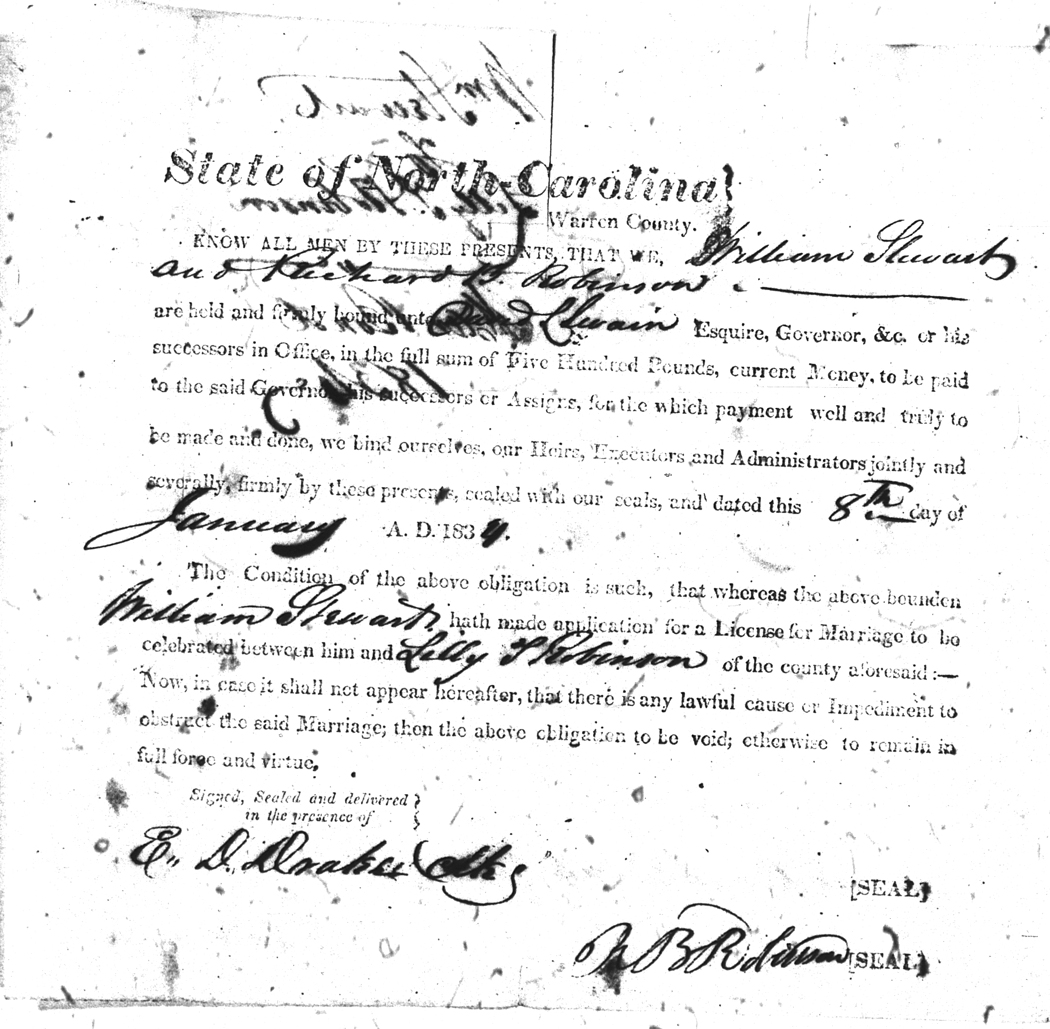 State of North-Carolina
Warren County.
KNOW ALL MEN BY THESE PRESENTS, THAT WE, William Stewart
and Richard B. Robinson
are held and firmly bound unto David L Swain Esquire, Governor, &c. or his
successors in Office, in the full sum of Five Hundred Pounds, current Money, to be paid
to the said Governor his successors or Assigns, for the which payment well and truly to
be made and done, we bind ourselves, our Heirs, Executors and Administrators jointly and
severally, firmly by these presents, sealed with our seals, and dated this 8th day of
January A. D. 1834.
The Condition of the above obligation is such, that whereas the above bounden
William Stewart hath made application for a License for Marriage to be
celebrated between him and Lilly T Robinson of the county aforesaid:—
Now, in case it shall not appear hereafter, that there is any lawful cause or Impediment to
obstruct the said Marriage; then the above obligation to be void; otherwise to remain in
full force and virtue.
Signed, Sealed and delivered
in the presence of
E. D. Drake Clk
[SEAL]
B Robinson [SEAL]